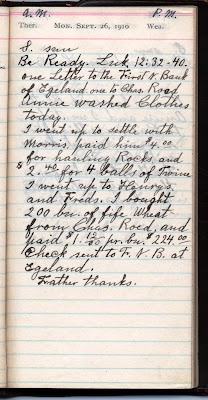 A. M. P. M.
Ther. MON. SEPT. 26, 1910 Wea.
S. sun
Be Ready. Luk. 12:32-40.
one Letter to the First N. Bank
of Egeland. one to Chas. Roed
Annie washed Clothes
today.
I went up to settle with
Morris, paid him $4.00
for hauling Rocks, and
$2.40 for 4 balls of Twine
I went up to Henrys,
and Freds. I bought
200 bu. of fife Wheat
from Chas. Roed, and
paid $1.12 pr. bu. $224.00
Check sent to F. N. B. at
Egeland.
Father thanks.